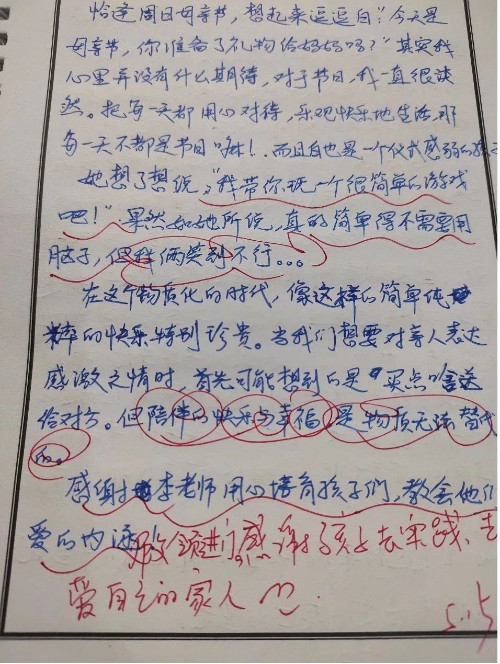 恰逢周日母亲节，想起来逗逗白：“今天是
母亲节，你准备了礼物给妈妈吗？”其实我
心里并没有什么期待，对于节日，我一直很淡
然。把每一天都用心对待，乐观快乐地生活，那
每一天不都是节日嘛！而且白也是一个仪式感弱的孩子
她想了想说：“我带你玩一个很简单的游戏
吧！”果然如她所说，真的简单得不需要用
脑子，但我俩笑到不行。。。
在这个物质化的时代，像这样的简单纯
粹的快乐特别珍贵。当我们想要对亲人表达
感激之情时，首先可能想到的是“买点啥送
给对方。但陪伴的快乐与幸福，是物质无法替代
的。
感谢李老师用心培育孩子们，教会他们
爱的内涵
领进门，感谢孩子去实践、去
爱自己的家人
5.15